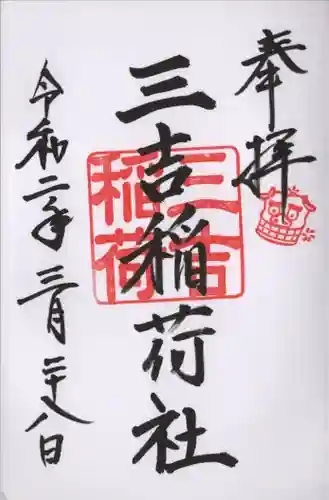 奉拝
三吉稲荷社
三吉
稲荷
令和二年三月二十八日